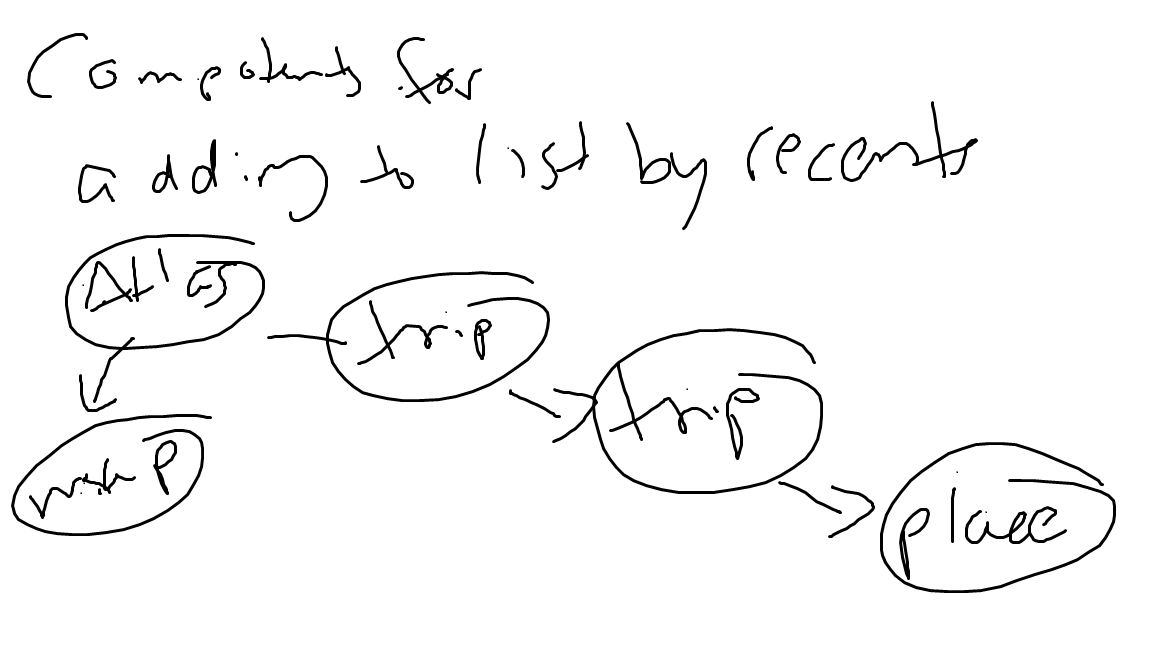 Compotents for
adding to list by recents
Atlas
trip
trip
map
place